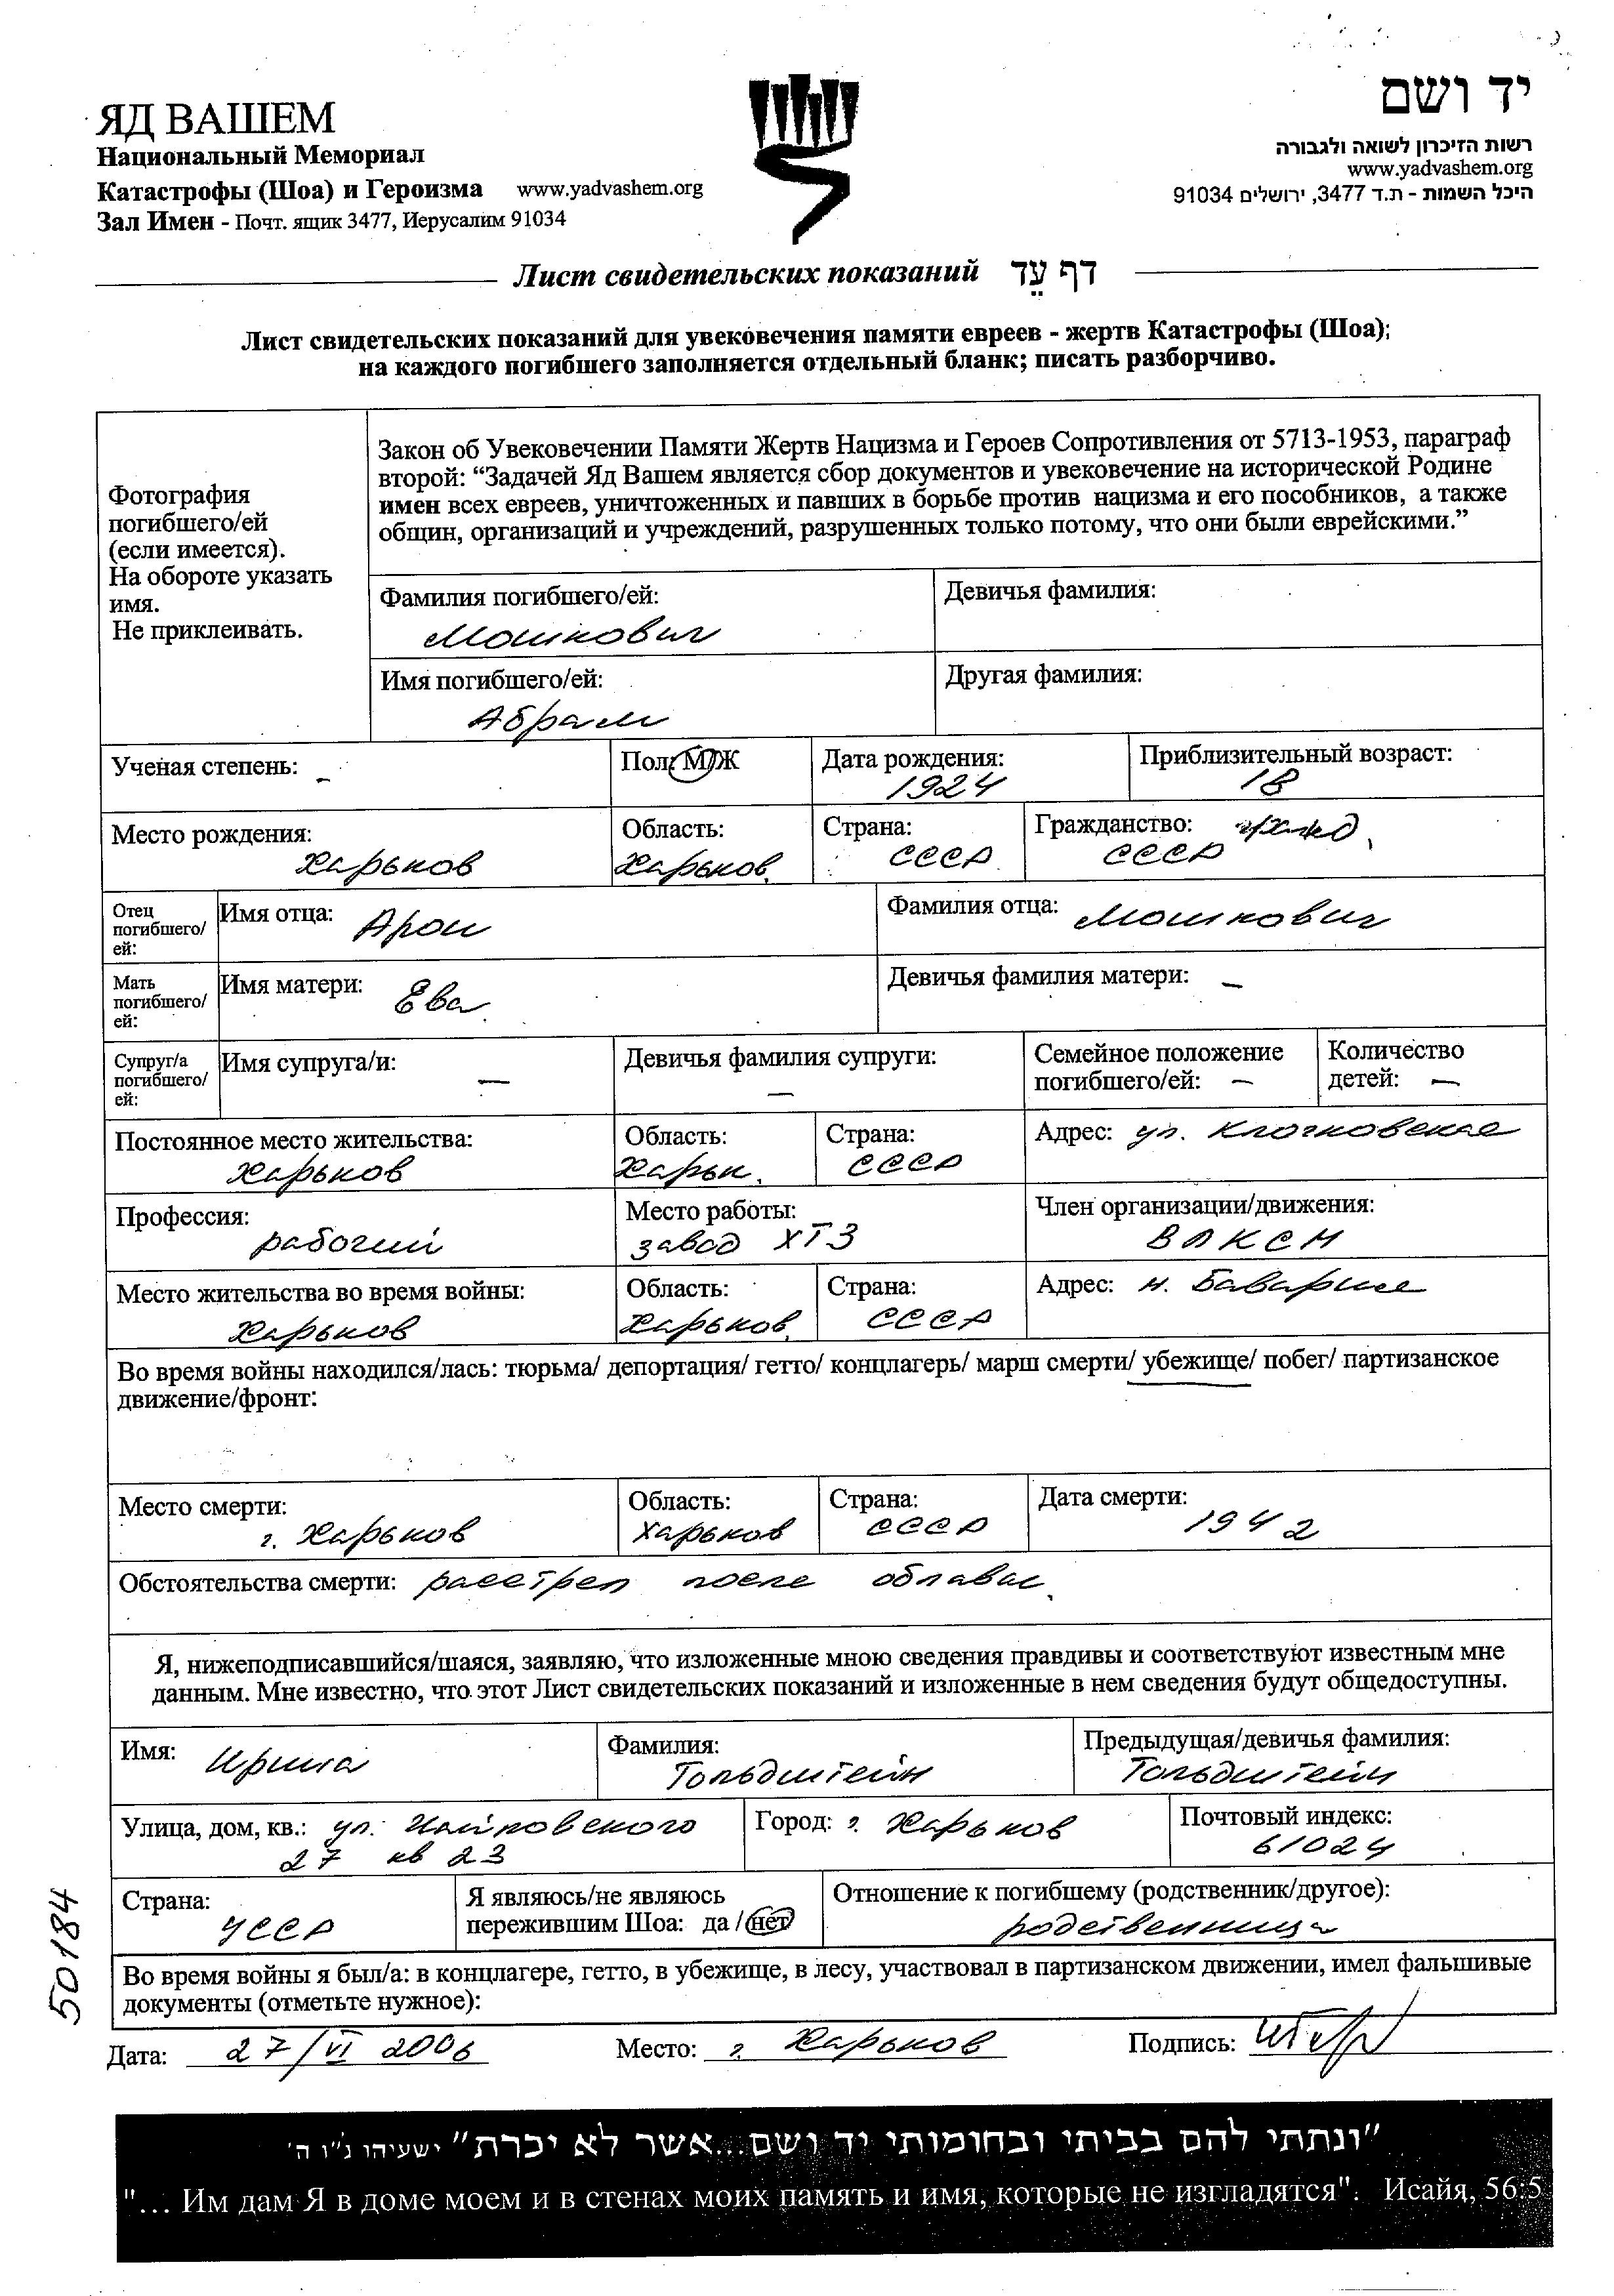 ЯД ВАШЕМ
Национальный Мемориал
Катастрофы (Шоа) и Героизма www.yadvashem.org
Зал Имен - Почт. ящик 3477, Иерусалим 91034
יד ושם
רשות הזיכרון לשואה ולגבורה
www.yadvashem.org
היכל השמות - ת.ד 3477, ירושלים 91034
Лист свидетельских показаний דף עֵד
Лист свидетельских показаний для увековечения памяти евреев - жертв Катастрофы (Шоа);
на каждого погибшего заполняется отдельный бланк; писать разборчиво.
Фотография
погибшего/ей
(если имеется).
На обороте указать
имя.
Не приклеивать.
Закон об Увековечении Памяти Жертв Нацизма и Героев Сопротивления от 5713-1953, параграф
второй: “Задачей Яд Вашем является сбор документов и увековечение на исторической Родине
имен всех евреев, уничтоженных и павших в борьбе против нацизма и его пособников, а также
общин, организаций и учреждений, разрушенных только потому, что они были еврейскими.”
Фамилия погибшего/ей: Девичья фамилия:
Мошкович
Имя погибшего/ей: Другая фамилия:
Абрам
Ученая степень: - Пол: М/Ж Дата рождения: Приблизительный возраст:
1924 18
Место рождения: Область: Страна: Гражданство:
Харьков Харьков. СССР СССР
Отец
погибшего/
ей:
Имя отца: Арон Фамилия отца: Мошкович
Мать
погибшего/
ей:
Имя матери: Ева Девичья фамилия матери: -
Супруг/а
погибшего/
ей:
Имя супруга/и: - Девичья фамилия супруги: -
Семейное положение
погибшего/ей: -
Количество
детей: -
Постоянное место жительства: Область: Страна: Адрес: ул. Клочковская
Харьков Харьк. СССР
Профессия: Место работы: Член организации/движения:
рабочий завод ХТЗ ВЛКСМ
Место жительства во время войны: Область: Страна: Адрес: н. Бавария
Харьков Харьков. СССР
Во время войны находился/лась: тюрьма/ депортация/ гетто/ концлагерь/ марш смерти/ убежище/ побег/ партизанское
движение/фронт:
Место смерти: Область: Страна: Дата смерти:
г. Харьков Харьков СССР 1942
Обстоятельства смерти: расстрел после облавы.
Я, нижеподписавшийся/шаяся, заявляю, что изложенные мною сведения правдивы и соответствуют известным мне
данным. Мне известно, что этот Лист свидетельских показаний и изложенные в нем сведения будут общедоступны.
Имя: Ирина Фамилия: Предыдущая/девичья фамилия:
Гольдштейн Гольдштейн
Улица, дом, кв.: ул. Чайковского Город: г. Харьков Почтовый индекс:
27 кв 23 61024
Страна:
УССР
Я являюсь/не являюсь
пережившим Шоа: да / нет
Отношение к погибшему (родственник/другое):
родственница
Во время войны я был/а: в концлагере, гетто, в убежище, в лесу, участвовал в партизанском движении, имел фальшивые
документы (отметьте нужное):
Дата: 27/VI 2006 Место: г. Харьков Подпись:
50184
"ונתתי להם בביתי ובחומותי יד ושם...אשר לא יכרת" ישעיהו נ"ו ה'
"... Им дам Я в доме моем и в стенах моих память и имя, которые не изгладятся". Исайя, 56:5